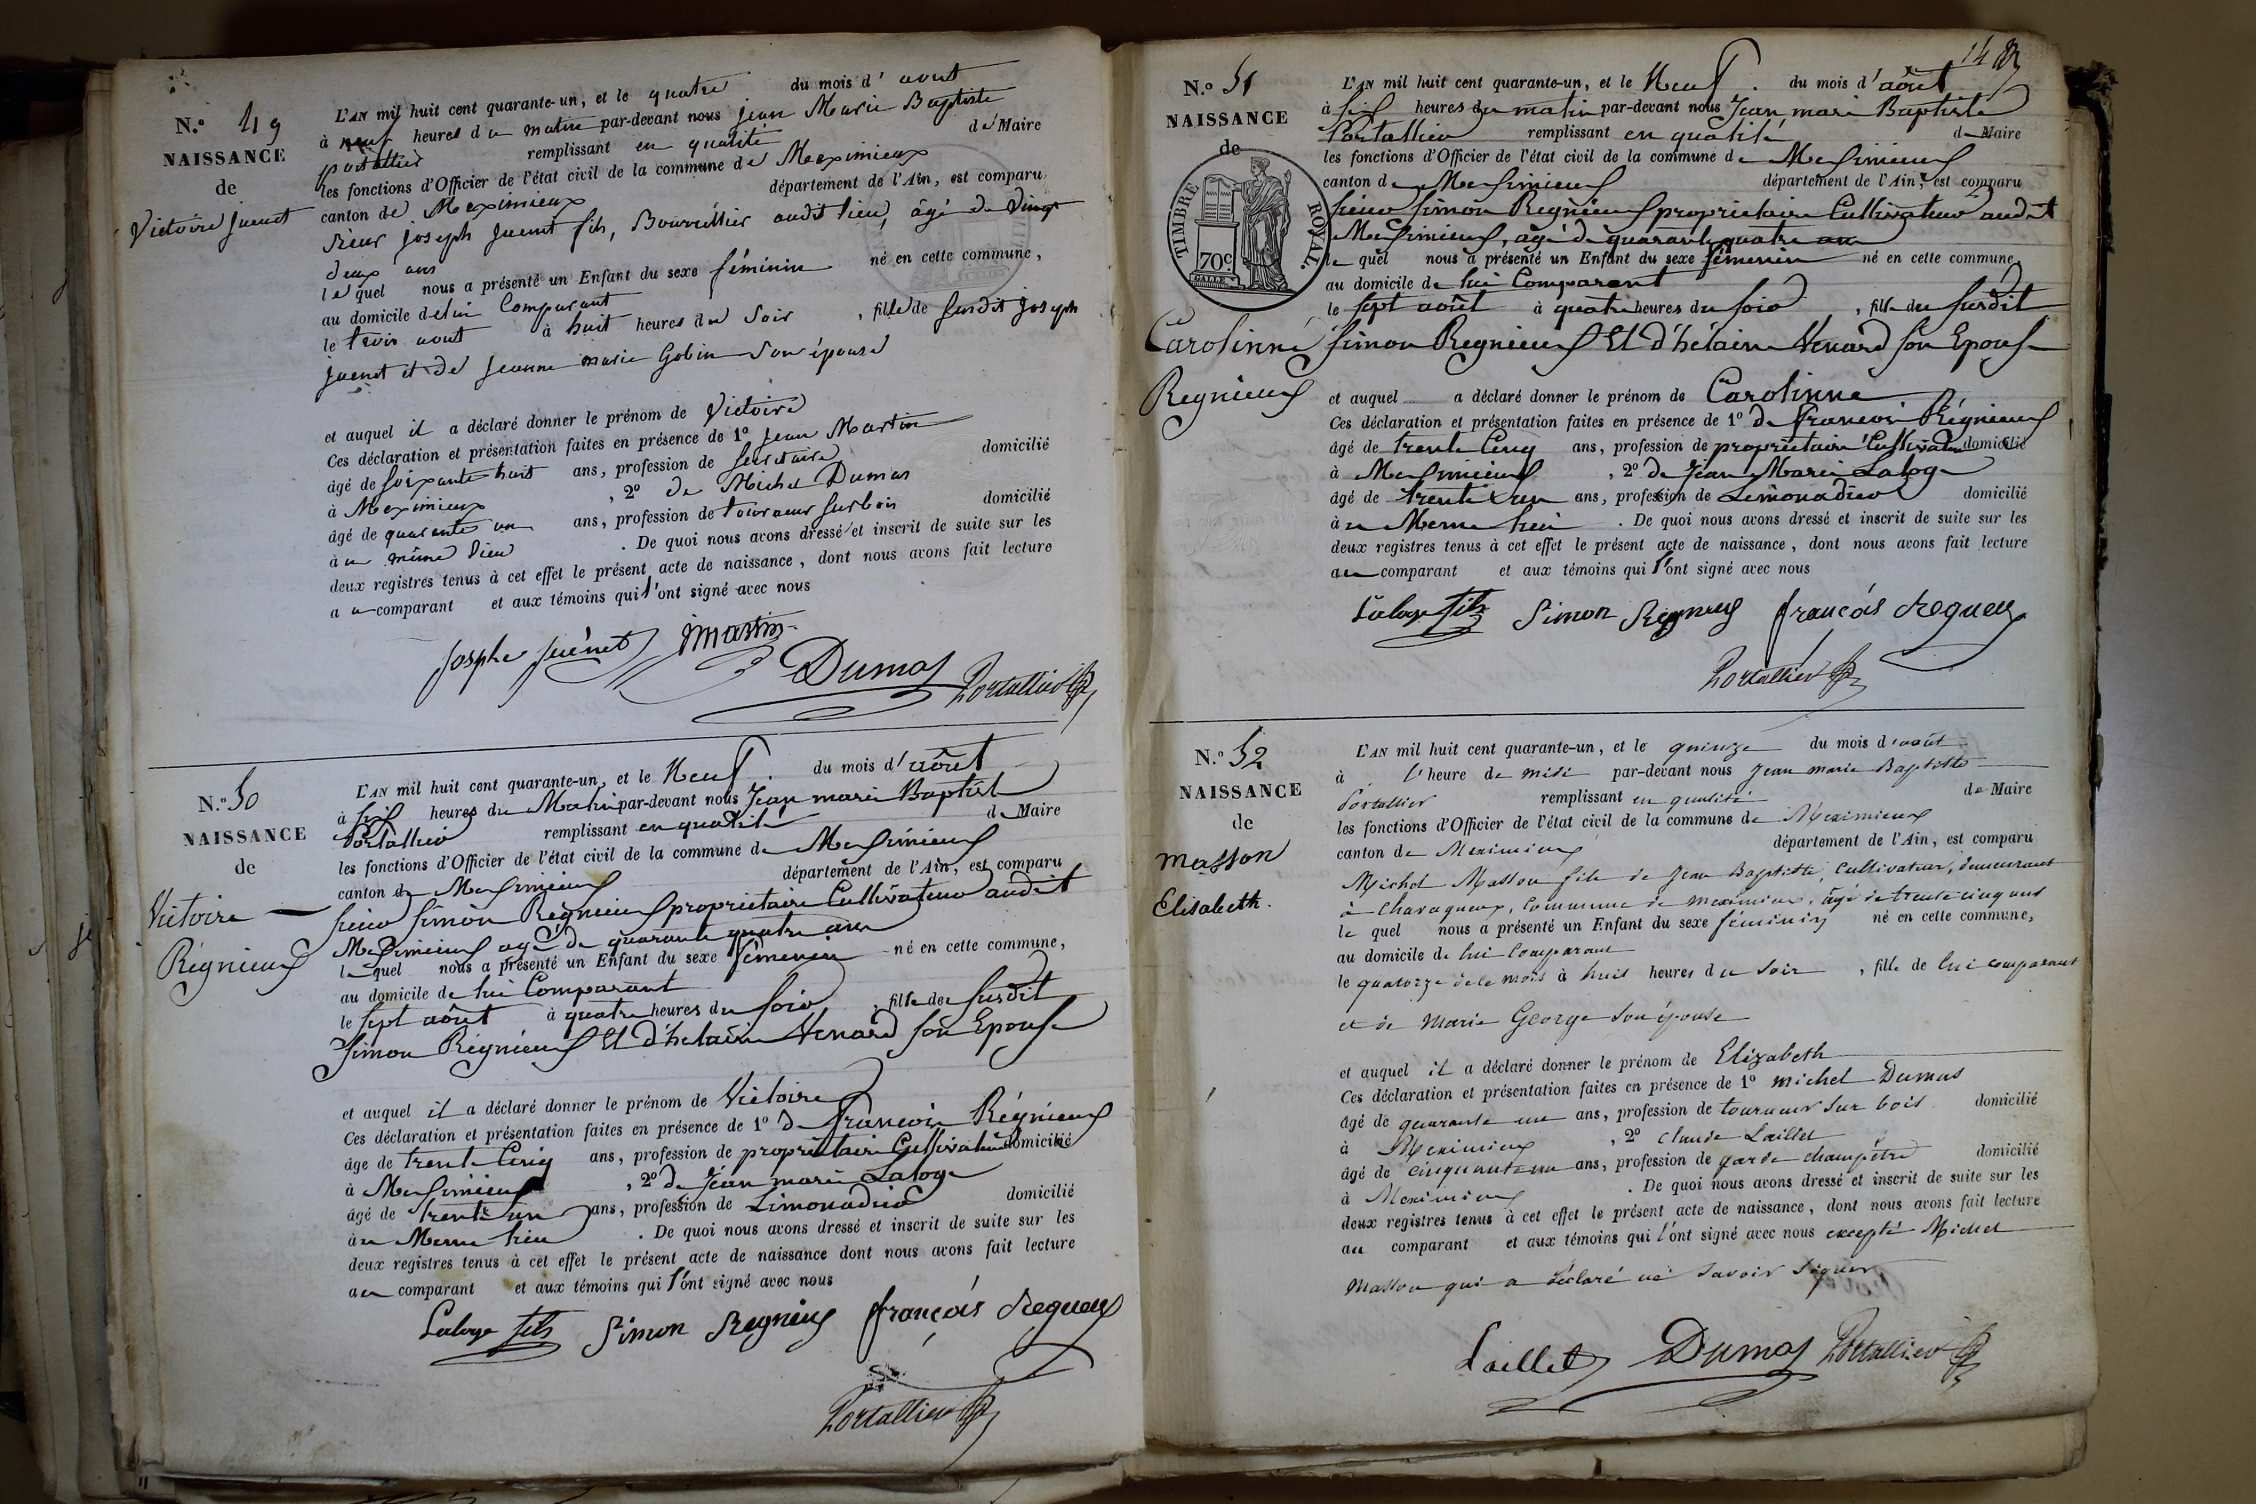 N.o 49
NAISSANCE
de
Victoire Juenet
L'AN mil huit cent quarante-un, et le quatre du mois d'aout
à neuf heures du matin par-devant nous Jean Marie Baptiste
portallier remplissant en qualité de Maire
les fonctions d'Officier de l'état civil de la commune de Meximieux
canton de Meximieux département de l'Ain, est comparu
Sieur Joseph Juenet fils, Bourrellier audit lieu, âgé de vingt
deux ans
lequel nous a présenté un Enfant du sexe féminin né en cette commune,
au domicile de lui Comparant
le trois aout à huit heures du Soir, fille de Susdit Joseph
Juenet et de Jeanne marie Gobin Son épouse
et auquel il a déclaré donner le prénom de Victoire
Ces déclaration et présentation faites en présence de 1o Jean Martin
âgé de soixante huit ans, profession de Secretaire domicilié
à Meximieux, 2o de Michel Dumas
âgé de quarante un ans, profession de tourneur sur bois domicilié
au même lieu. De quoi nous avons dressé et inscrit de suite sur les
deux registres tenus à cet effet le présent acte de naissance, dont nous avons fait lecture
au comparant et aux témoins qui l'ont signé avec nous
Josphe Juénet JMartin
Dumas Portallier
N.o 50
NAISSANCE
de
Victoire
Régnieux
L'AN mil huit cent quarante-un, et le Neuf. du mois d'août
à six heures du Matin par-devant nous Jean marie Baptiste
Portallier remplissant en qualité de Maire
les fonctions d'Officier de l'état civil de la commune de Meximieux
canton de Meximieux département de l'Ain, est comparu
sieur Simon Régnieux propriétaire Cultivateur audit
Meximieux agé de quarante quatre ans
lequel nous a présenté un Enfant du sexe fémenin né en cette commune,
au domicile de lui Comparant
le sept août à quatre heures du soir, fille de susdit
Simon Régnieux Et d'hélaine Venard son Epouse
et auquel il a déclaré donner le prénom de Victoire
Ces déclaration et présentation faites en présence de 1o de francois Régnieux
âge de trente Cinq ans, profession de propriétaire Cultivateur domicilié
à Meximieux, 2o de Jean marie Laloge
âgé de trente un ans, profession de Limonadier domicilié
au Meme lieu. De quoi nous avons dressé et inscrit de suite sur les
deux registres tenus à cet effet le présent acte de naissance dont nous avons fait lecture
au comparant et aux témoins qui l'ont signé avec nous
Laloge fils Simon Regnieux françois Regneux
Portallier
148
N.o 51
NAISSANCE
de
TIMBRE ROYAL.
70c
Carolinne
Regnieux
L'AN mil huit cent quarante-un, et le Neuf. du mois d'août
à six heures du matin par-devant nous Jean mari Baptiste
Portallier remplissant en qualité de Maire
les fonctions d'Officier de l'état civil de la commune de Meximieux
canton de Meximieux département de l'Ain, est comparu
sieur Simon Regnieux propriétaire Cultivateur audit
Meximieux, agé de quarante quatre ans
le quel nous a présenté un Enfant du sexe fémenin né en cette commune,
au domicile de lui Comparant
le sept août à quatre heures du soir, fille du susdit
Simon Regnieux Et d'hélaine Venard son Epouse
et auquel a déclaré donner le prénom de Carolinne
Ces déclaration et présentation faites en présence de 1o de francois Régnieux
âgé de trente Cinq ans, profession de propriétaire Cultivateur domicilié
à Meximieux, 2o de Jean Marie Laloge
âgé de trente un ans, profession de Limonadier domicilié
au Meme lieu. De quoi nous avons dressé et inscrit de suite sur les
deux registres tenus à cet effet le présent acte de naissance, dont nous avons fait lecture
au comparant et aux témoins qui l'ont signé avec nous
Laloge fils Simon Regnieux françois Regneux
Portallier
N.o 52
NAISSANCE
de
Masson
Elisabeth.
L'AN mil huit cent quarante-un, et le quinze du mois d'août
à l'heure de midi par-devant nous Jean marie Baptiste
Portallier remplissant en qualité de Maire
les fonctions d'Officier de l'état civil de la commune de Meximieux
canton de Meximieux département de l'Ain, est comparu
Michel Masson fils de Jean Baptiste, Cultivateur, demeurant
à Charagneux, Commune de meximieux, âgé de trente cinq ans
le quel nous a présenté un Enfant du sexe féminin né en cette commune,
au domicile de lui Comparant
le quatorze de le mois à huit heures du soir, fille de lui comparant
et de Marie George son épouse
et auquel il a déclaré donner le prénom de Elizabeth
Ces déclaration et présentation faites en présence de 1o michel Dumas
âgé de quarante un ans, profession de tourneur sur bois domicilié
à Meximieux, 2o Claude Laillet
âgé de cinquante un ans, profession de garde champêtre domicilié
à Meximieux. De quoi nous avons dressé et inscrit de suite sur les
deux registres tenus à cet effet le présent acte de naissance, dont nous avons fait lecture
au comparant et aux témoins qui l'ont signé avec nous excepté Michel
Masson qui a déclaré ne savoir signer
Laillet Dumas Portallier